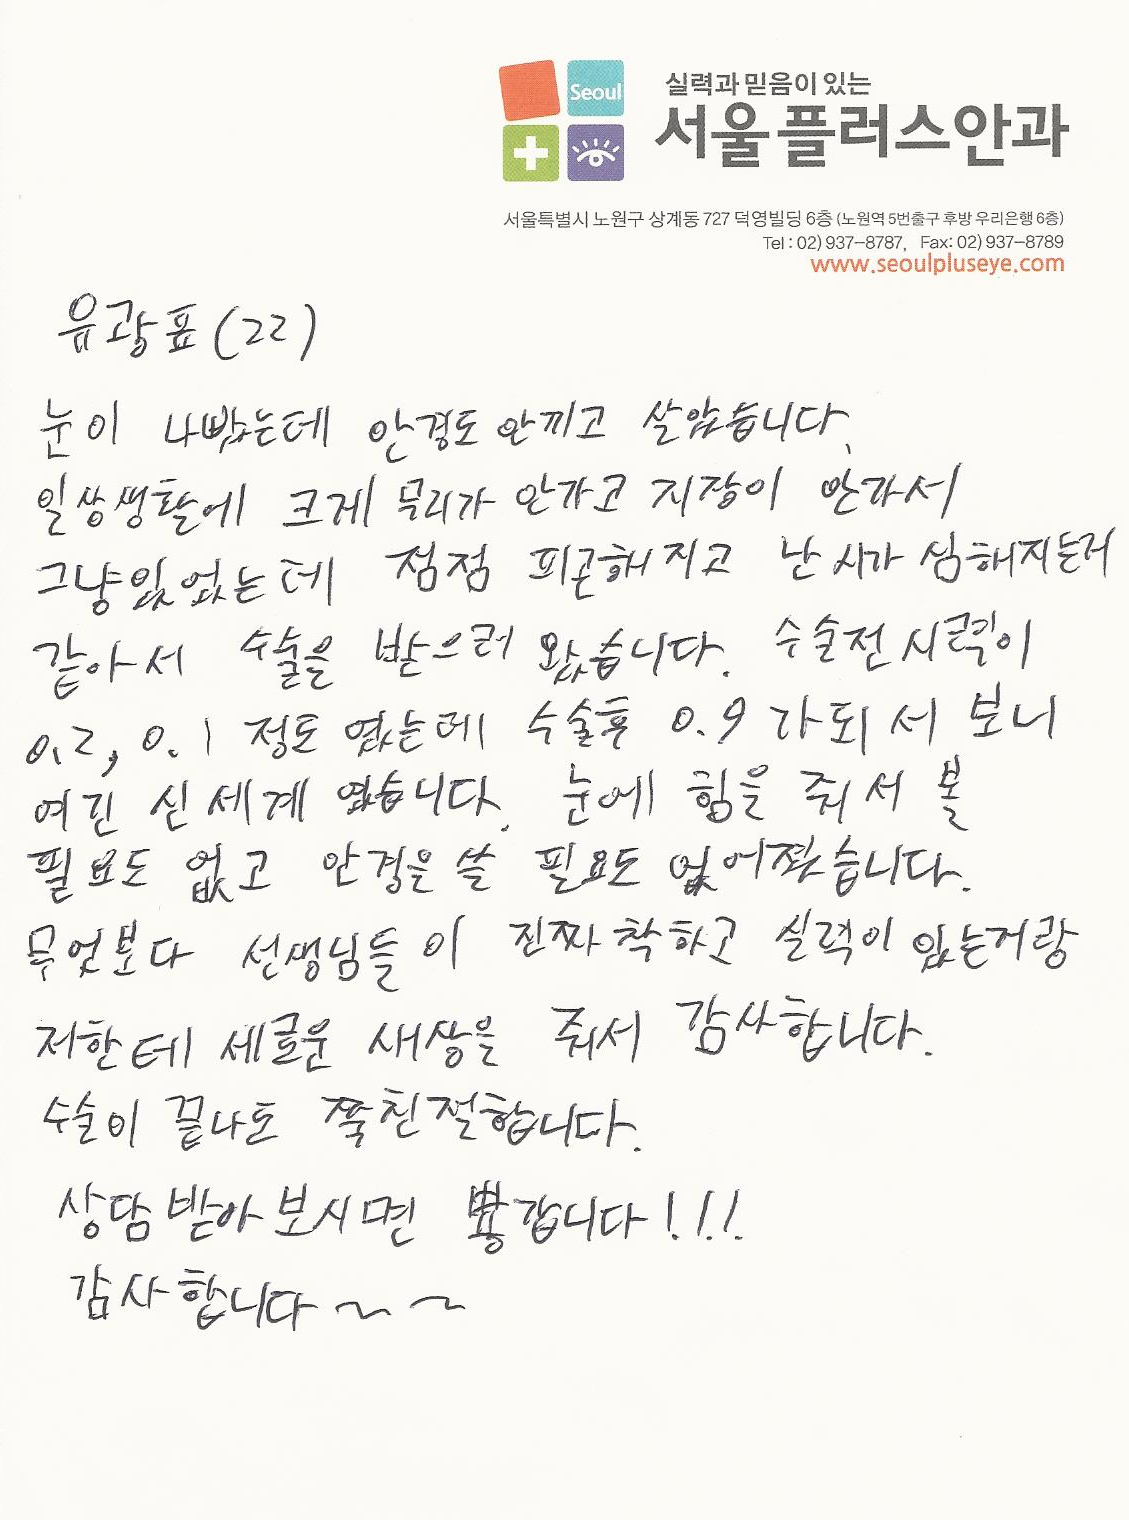 Seoul
실력과 믿음이 있는
서울플러스안과
서울특별시 노원구 상계동 727 덕영빌딩 6층 (노원역 5번출구 후방 우리은행 6층)
Tel : 02) 937-8787, Fax: 02) 937-8789
www.seoulpluseye.com
유광표 (22)
눈이 나빴는데 안경도 안끼고 살았습니다.
일상생활에 크게 무리가 안가고 지장이 안가서
그냥있었는데 점점 피곤해지고 난시가 심해지는거
같아서 수술을 받으러 왔습니다. 수술전 시력이
0.2, 0.1 정도 였는데 수술후 0.9 가되서 보니
여긴 신세계 였습니다. 눈에 힘을 줘서 볼
필요도 없고 안경을 쓸 필요도 없어졌습니다.
무엇보다 선생님들이 진짜 착하고 실력이 있는거랑
저한테 세로운 새상을 줘서 감사합니다.
수술이 끝나도 쭉친절합니다.
상담받아보시면 뿅갑니다!!!
감사합니다~~